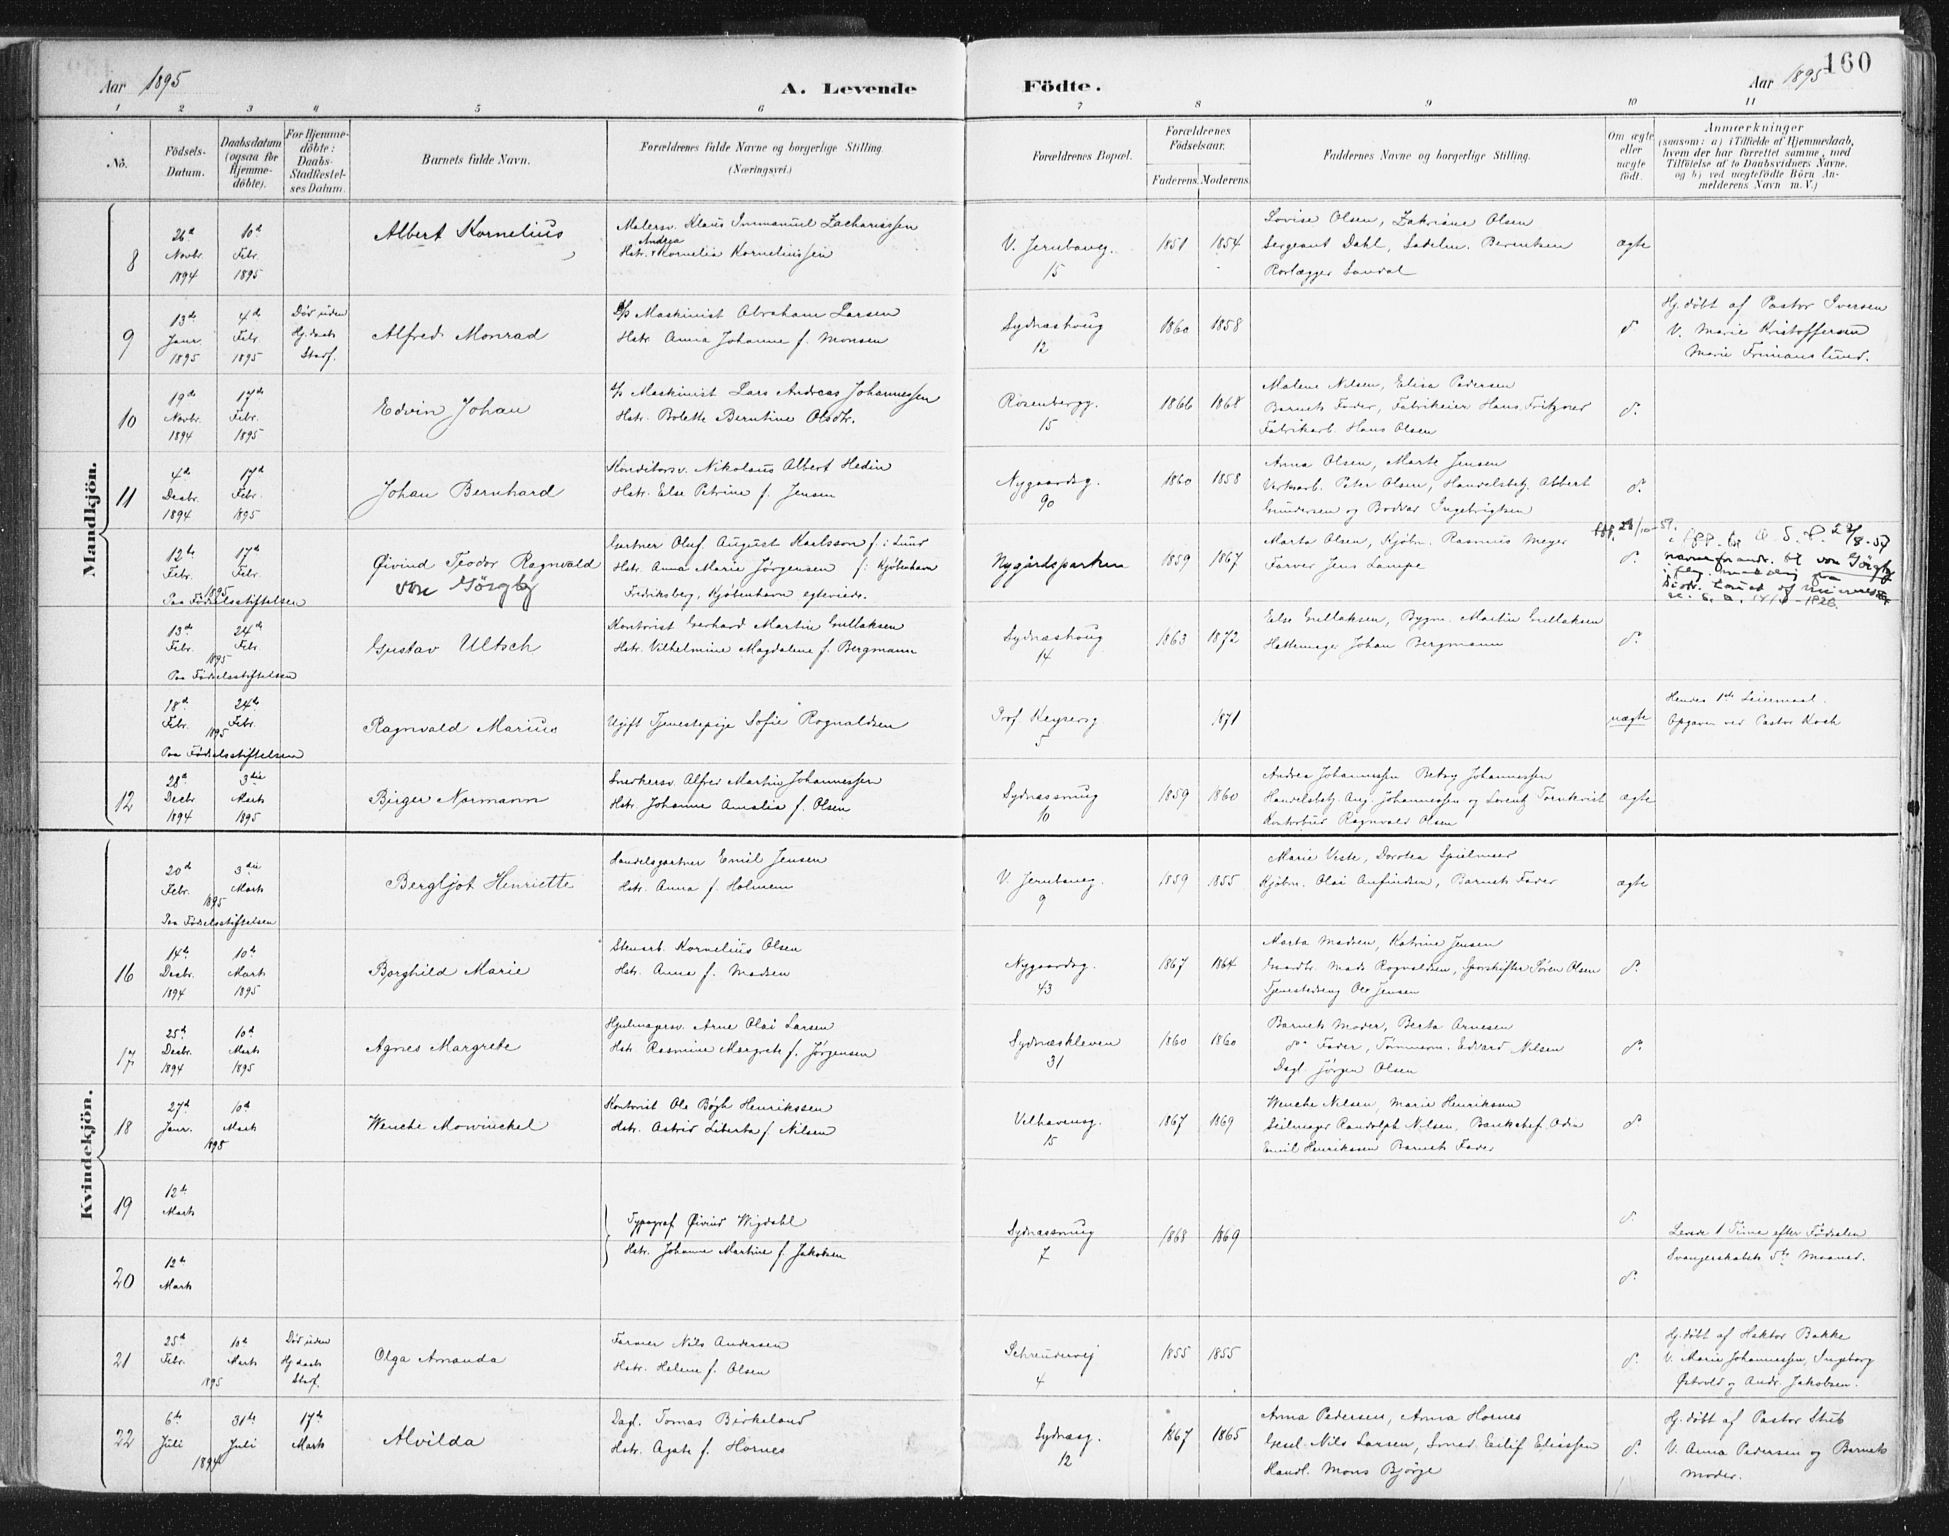 160
Aar 1895
A. Levende Födte.
Aar 1895
1 2 3 4 5 6 7 8 9 10 11
Nô.
Födsels-Datum.
Daabsdatum (ogsaa for Hjemme-döbte).
For Hjemme-döbte: Daabs-Stadfestel-ses Datum.
Barnets fulde Navn.
Forældrenes fulde Navne og borgerlige Stilling. (Næringsvei.)
Forældrenes Bopæl.
Forældrenes Födselsaar.
Faderens. Moderens.
Faddernes Navne og borgerlige Stilling.
Om ægte eller uægte födt.
Anmærkninger
(saasom: a) i Tilfælde af Hjemmedaab,
hvem der har forrettet samme, med
Tilföielse af to Daabsvidners Navne.
og b) ved uægtefödte Börn An-
melderens Navn m. V.)
Mandkjön.
8
26d Novbr. 1894
10d Febr. 1895
Albert Kornelius
Malersv. Klaus Immanuel Zachariassen
Hstr. Andrea Kornelia Korneliussen
V. Jernbaneg. 15
1851 1854
Lovise Olsen, Zakrine Olsen
Sergeant Dahl, Sadelm. Berentsen
Rorlægger Sandal
ægte
9
13de Janr. 1895
4de Febr 1895
Död uden Hj.daab Stadf.
Alfred Monrad
D/S Maskinist Abraham Larsen
Hstr. Anna Johanne f. Monsen
Sydnæshaug 12
1860 1858
do
Hj.döbt af Pastor Iversen
V. Marie Kristoffersen
Marie Frimanslund.
10
19de Novbr. 1894
17de Febr. 1895
Edvin Johan
D/S Maskinist Lars Andreas Johannessen
Hstr. Bolette Berntine Olsdtr.
Rosenbergg. 15
1866 1868
Malene Nilsen, Elisa Pedersen
Barnets Fader, Fabrikeier Hans Fritzner
Fabrikarb. Hans Olsen
do.
11
4de Decbr. 1894
17de Febr. 1895
Johan Bernhard
Konditorsv. Nikolaus Albert Hedin
Hstr. Else Petrine f. Jensen
Nygaardsg. 90
1860 1858
Anna Olsen, Marte Jensen
Verksarb. Peter Olsen, Handelsbetj. Albert
Gundersen og Bodvar Ingebrigtsen
do.
12te Febr. 1895
17de Febr.
Paa Födselsstiftelsen
Øivind Teodor Ragnvald
von Görgby
Gartner Oluf August Karlsson f. i Lund
Hstr. Anna Marie Jørgensen f. Kjøbenhavn
Fredriksberg, Kjøbenhavn egteviede.
Nygårdsparken
1859 1867
Marta Olsen, Kjøbm. Rasmus Meyer
Farver Jens Lampe
do.
navneforandr. til von Görgby
13de Febr. 1895
24de Febr
Paa Födselsstiftelsen
Gustav Ultsch
Kontorist Gerhard Martin Gullaksen
Hstr. Vilhelmine Magdalene f. Bergmann
Sydnæshaug 14
1863 1872
Else Gullaksen, Bygm. Martin Gullaksen
Hattemager Johan Bergmann
do.
18de Febr. 1895
24de Febr.
Paa Födselsstiftelsen
Ragnvald Marius
Ugift Tjenestepige Sofie Rognaldsen
Prof Keysersg 5
1871
uægte
Hendes 1ste Leiermaal.
Opgaven ved Pastor Koch
12
28d Decbr. 1894
3die Marts 1895
Birger Normann
Snedkersv. Alfred Martin Johannessen
Hstr. Johanne Amalia f. Olsen
Sydnæssmug 10
1859 1860
Andrea Johannessen Betsy Johannessen
Handelsbetj. Aug. Johannessen og Lorentz Tornkvist
Kontorbud Ragnvald Olsen
ægte
Kvindekjön.
20de Febr. 1895
3die Marts
Paa Födselsstiftelsen
Bergljot Henriette
Handelsgartner Emil Jensen
Hstr. Anna f. Holmen
V. Jernbaneg. 9
1859 1855
Marie Veste, Dorotea Spielmeer
Kjøbm. Olai Anfindsen, Barnets Fader
ægte
16
14de Decbr. 1894
10de Marts 1895
Borghild Marie
Stenarb. Kornelius Olsen
Hstr. Anna f. Madsen
Nygaardsg. 43
1867 1864
Marta Madsen, Katrine Jensen
Gaardbr. Mads Rognvaldsen, Sporskifter Sören Olsen
Tjenestedreng Ole Jensen
do.
17
25d Decbr. 1894
10d Marts 1895
Agnes Margrete
Hjulmagersv. Arne Olai Larsen
Hstr. Rasmine Margrete f. Jørgensen
Sydnæskleven 31
1860 1860
Barnets Moder, Berta Arnesen
do Fader, Tömmerm. Edvard Nilsen
Dagl. Jörgen Olsen
do.
18
27d Janr. 1895
10d Marts
Wenche Mowinckel
Kontorist Ole Bøgh Henrikssen
Hstr. Astrid Liberta f. Nilsen
Velhavensg. 15
1867 1869
Wenche Nilsen, Marie Henriksen
Seilmager Randolph Nilsen, Bankchef Odin
Emil Henrikssen Barnets Fader
do
19
12te Marts
Typograf Øivind Wigdahl
Hstr. Johanne Martine f. Jakobsen
Sydnæssmug 7
1868 1869
do.
Levede 1 Time efter Födselen
Svangerskabets 5te Maaned.
20
12te Marts
do.
21
25d Febr. 1895
10de Marts
Död uden Hj daab Stadf.
Olga Amanda
Farver Nils Andersen
Hstr. Helene f. Olsen
Schreudervej 4
1855 1855
do.
Hj.döbt af Haktor Bakke
V. Marie Johannessen, Ingeborg
Østvold og Andr. Jakobsen.
22
6te Juli 1894
31te Juli
17de Marts
Alvilda
Dagl. Tomas Birkeland
Hstr. Agate f. Hornes
Sydnæsg. 12
1867 1865
Anna Pedersen, Anna Hornes
Gesel Nils Larsen, Smed Eilif Eliassen
Handl. Mons Bjørge
do.
Hj.döbt af Pastor Stub
V. Anna Pedersen og Barnets
Moder.